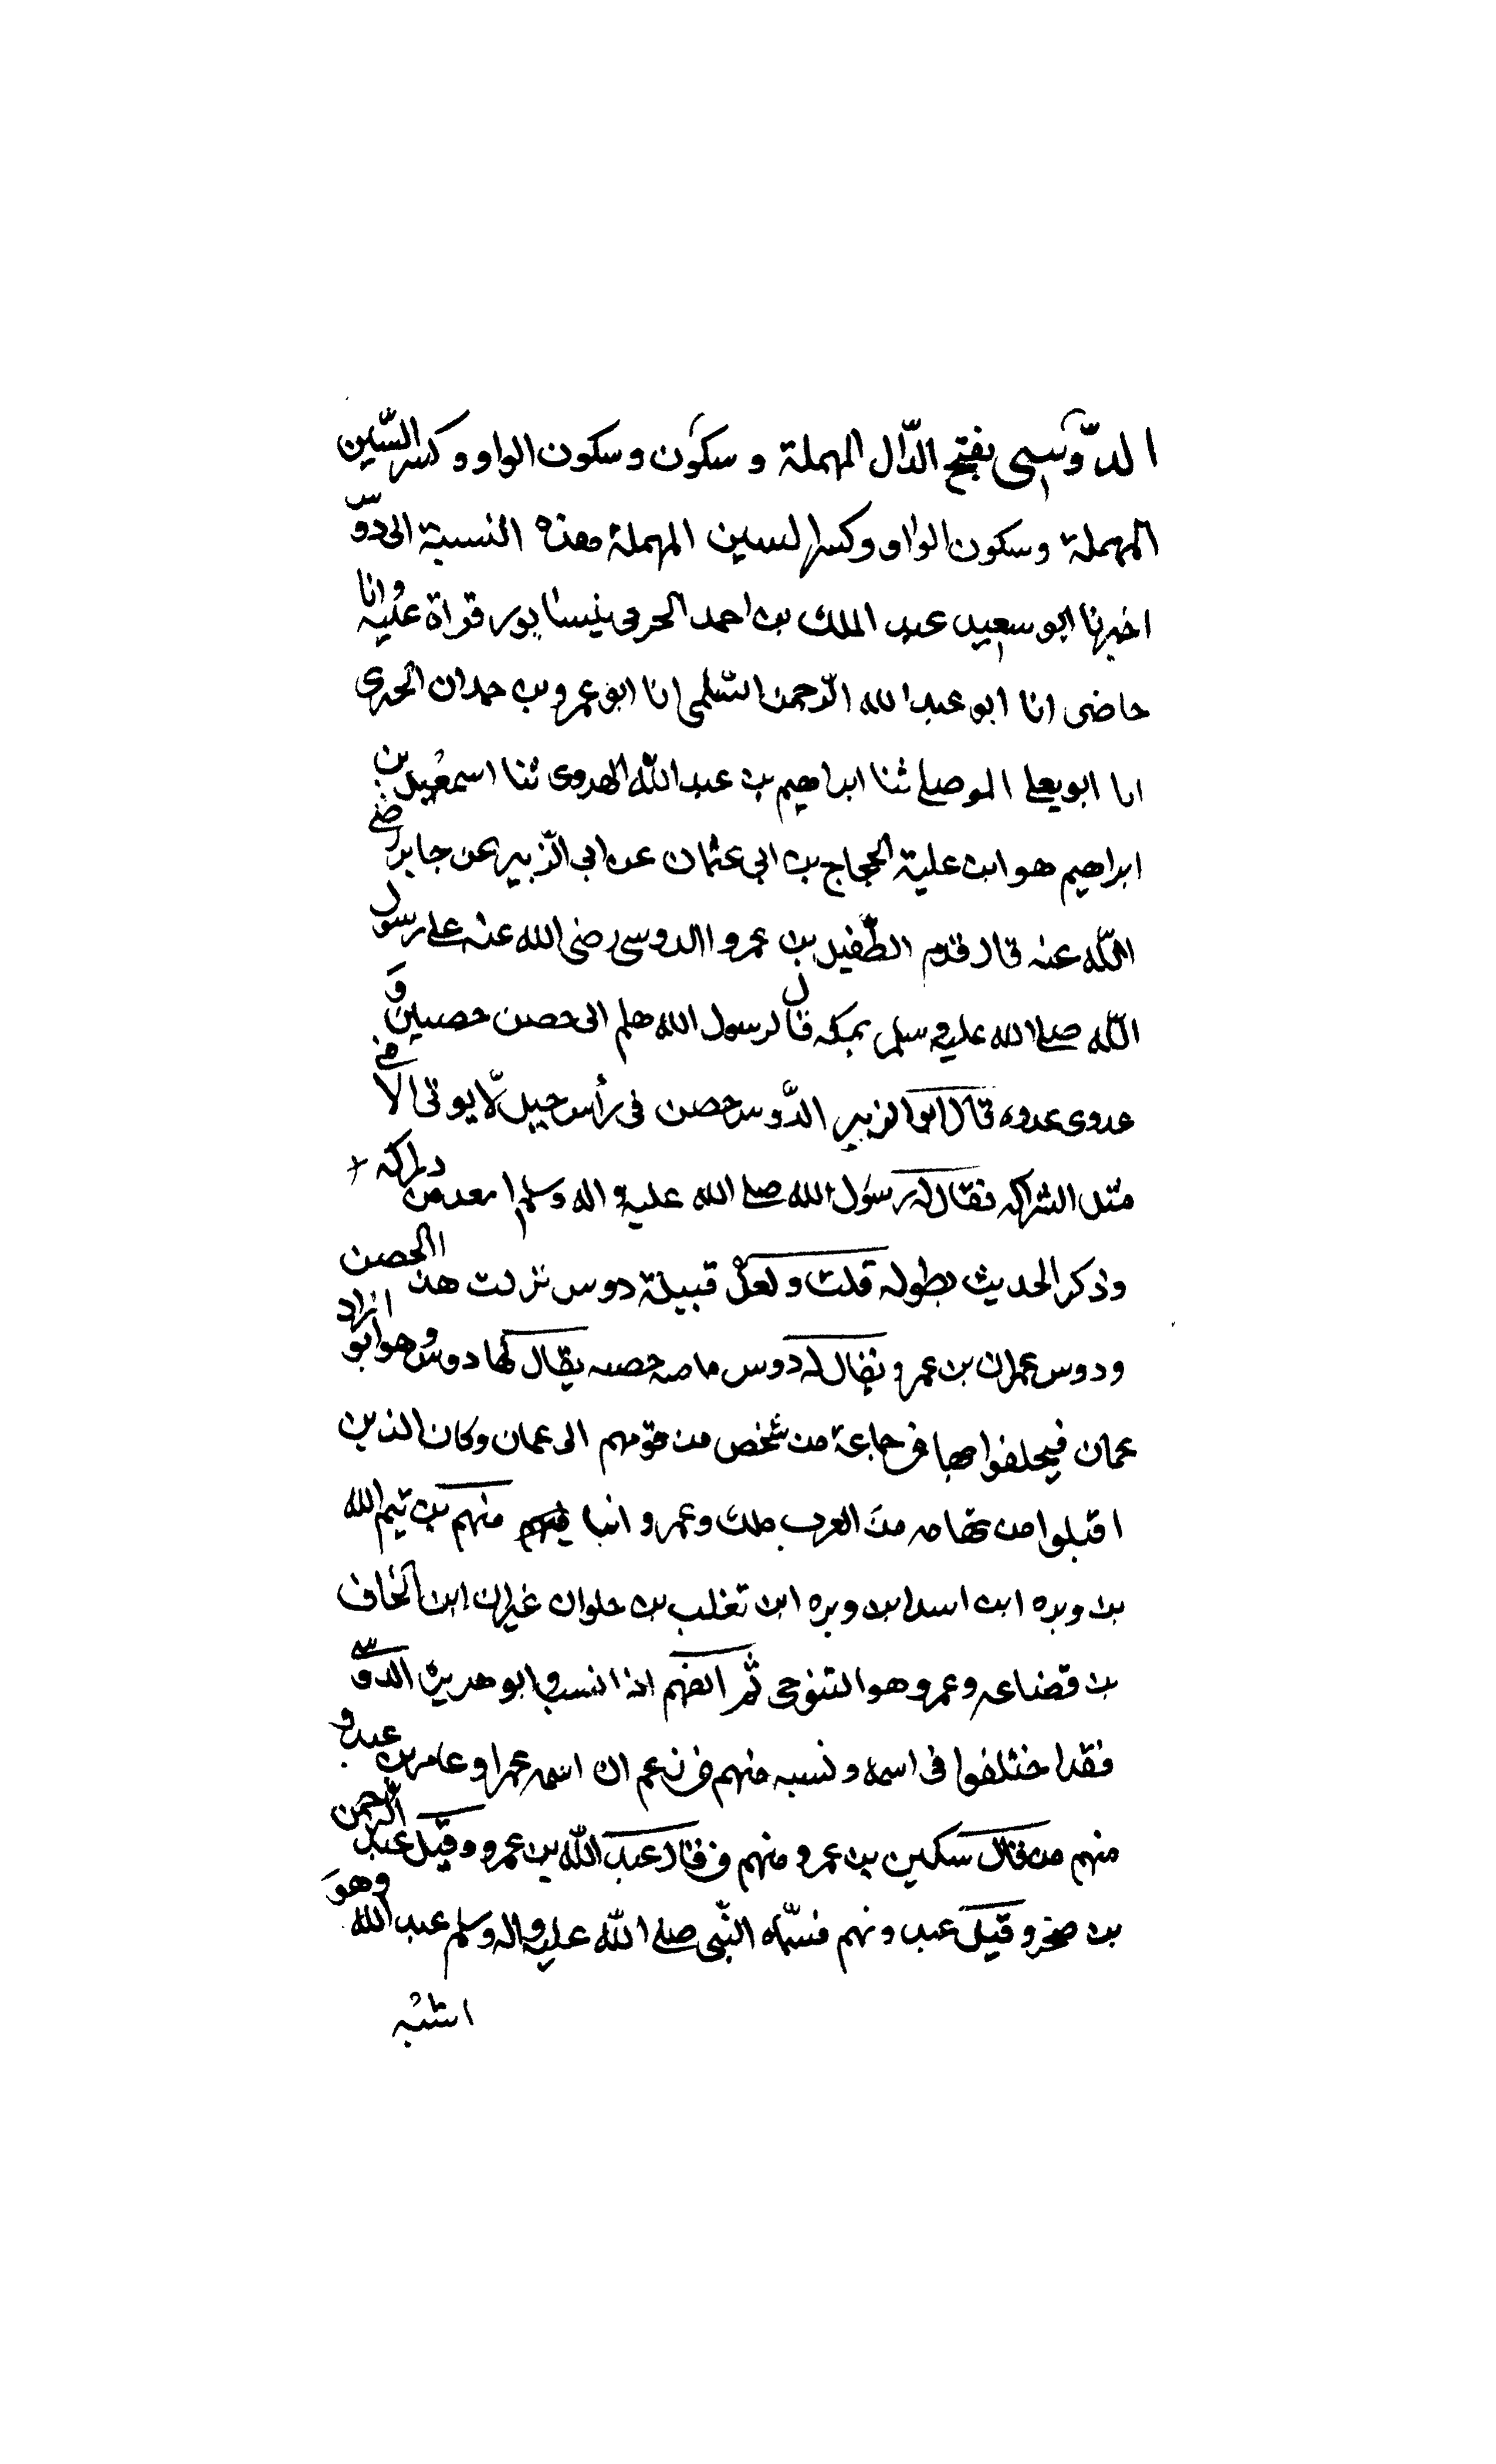 الدّوسى بفتح الدّال المهملة و سكون و سكون الواو و كسر السّين
المهملة و سكون الواو و كسر السين المهملة هذه النسبة الى دوس
اخبرنا ابو سعيد عبد الملك بن احمد الحرمى بنيسابور قراة عليه وانا
حاضر انا ابو عبد الله الرّحمن السّلمى انا ابو عمرو بن حمدان الحيرى
انا ابو يعلى الموصلى ثنا ابراهيم بن عبد الله الهروى ثنا اسمعيل بن
ابراهيم هو ابن علية الحجاج بن ابى عثمان عن ابى الزّبير عن جابر رضى
اللّه عنه قال قدم الطّفيل بن عمرو االدوسى رضى الله عنه على رسول
اللّه صلى الله عليه وسلم بمكه قال لرسول الله هلم الى حصن حصين و
عدوى عدوه قال ابو الزبير الدّوس حصن فى رأس جبل لّا يوتى الا فى
مثل الشراك فقال له رسول الله صلى الله عليه واله وسلم امعد من
وذكر الحديث بطوله قلت ولعل قبيلة دوس نزلت هذ االحصن
ودوس عمران بن عمرو يقال له دوس يقال لها دوس وهو ابو ازد
عمان فيحلفوا بها فى جاعة من شخص من قومهم الى عمان وكان الذين
اقبلوا من تهامه من العرب ملك وعمرو ابنا فهم منهم بن تيم الله
بن وبره ابن اسد ابن وبره ابن تغلب بن حلوان عمران ابن الحاف
بن قضاعه وعمرو هو التنوخى ثم ابو هريرة الدوسى
فقد اختلفوا فى اسمه ونسبه منهم من زعم ان اسمه عمرا و عامر بن عبد و
منهم من قال سكين بن عمرو منهم من قال عبد الله بن عمرو وقيل عبد الرحمن
بن صخر وقيل عبد ونهم فسمّاه النّبى صلى الله عليه واله وسلم عبد الله وهو
اشبه